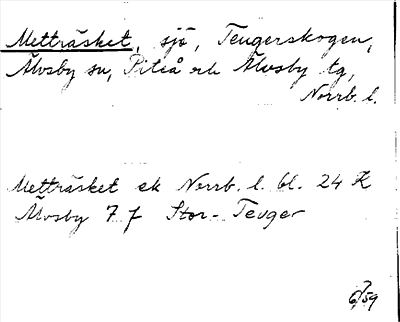 Metträsket, sjö, Teugerskogen,
Älvsby sn, Piteå och Älvsby tg,
Norrb. l.
Metträsket ek Norrb. l. bl. 24 K
Älvsby 7 f Stor-Teuger